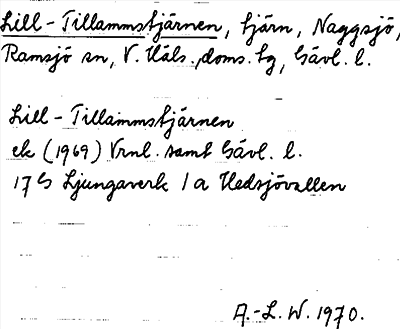 Lill-Tillammstjärnen, tjärn, Naggsjö,
Ramsjö sn, V. Häls. doms. tg, Gävl. l.
Lill-Tillammstjärnen
ek (1969) Vrnl. samt Gävl. l.
17 G Ljungaverk 1 a Hedsjövallen
A.-L. W. 1970.